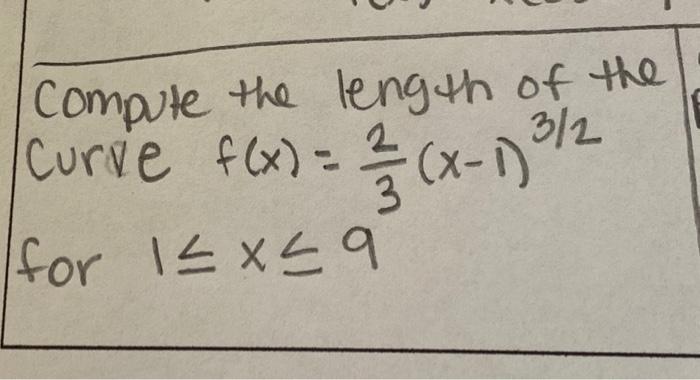 Compute the length of the
Curve f(x) = 2/3 (x-1)^3/2
for 1 ≤ x ≤ 9